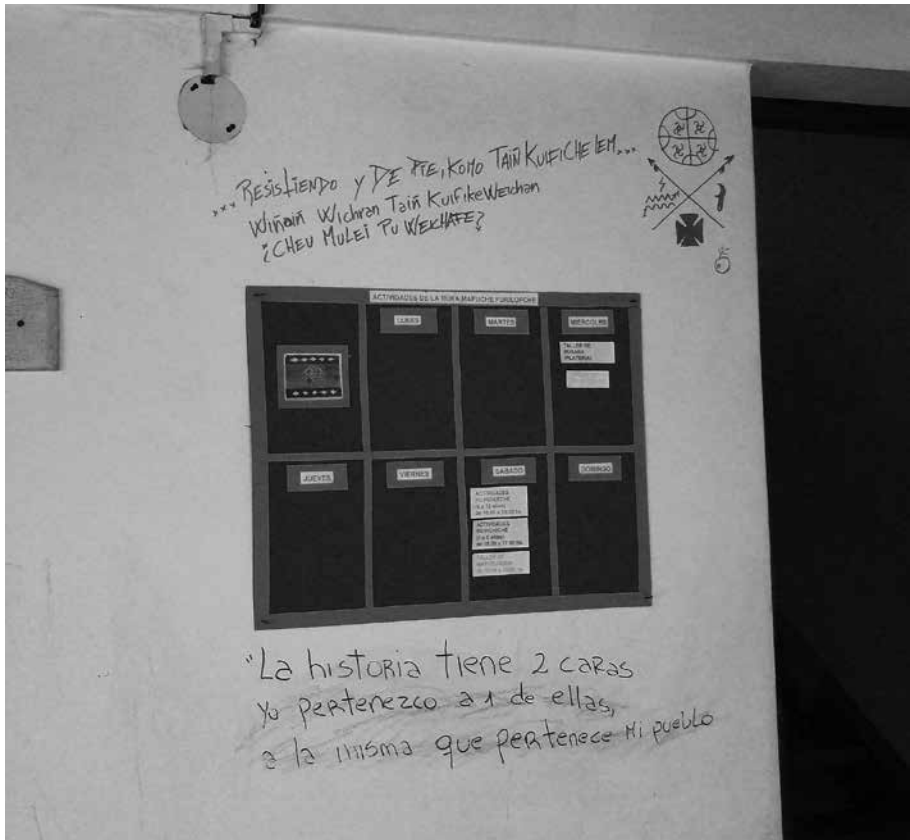 ... RESISTIENDO Y DE PIE, KOMO TAIÑ KUIFICHELEM...
Wiñaiñ Wichran Taiñ KuifikeWeichan
¿CHEU MULEI PU WEICHAFE?
ACTIVIDADES DE LA RUKA MAPUCHE
LUNES
MARTES
MIERCOLES
TALLER DE
(PLATERIA)
JUEVES
VIERNES
SABADO
DOMINGO
ACTIVIDADES
ACTIVIDADES
TALLER DE
"La historia tiene 2 caras
yo pertenezco a 1 de ellas,
a la misma que pertenece mi pueblo